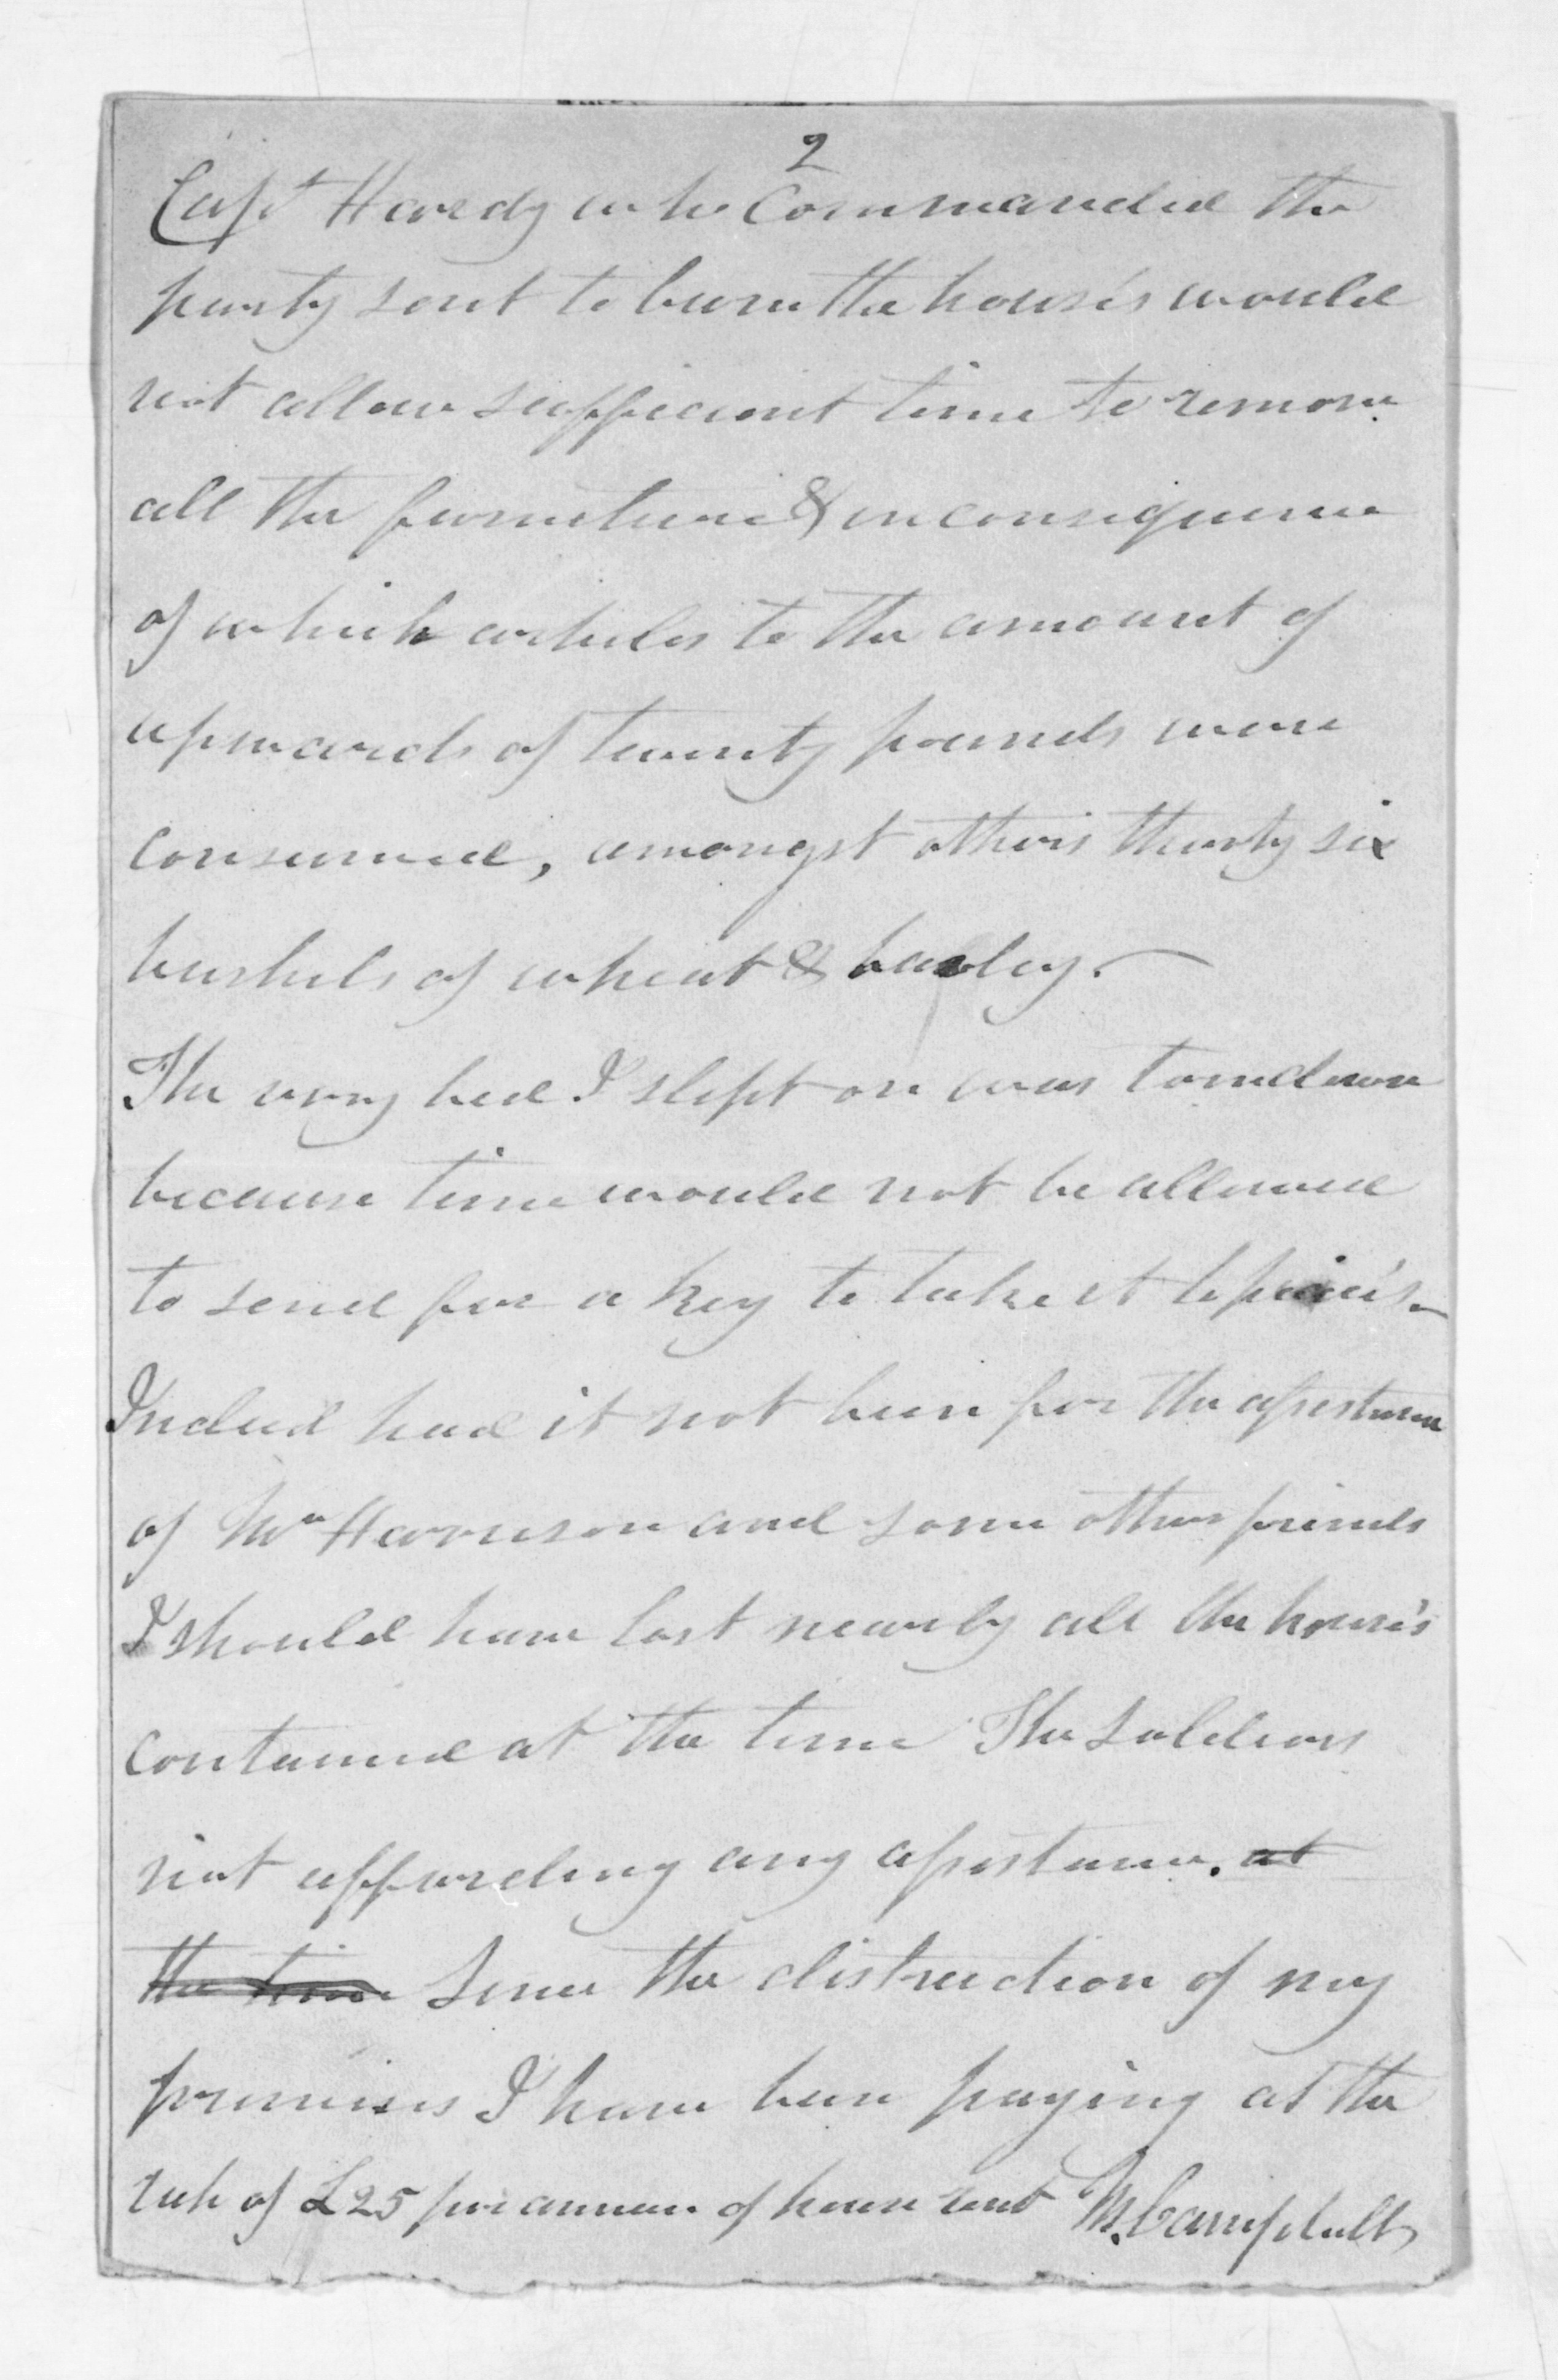 2
Capt Hardy who Commanded the
party sent to burn the house's would
not allow sufficient time to remove
all the furniture & in consequence
of which articles to the amount of
upwards of twenty pounds were
consumed, amongst others thirty six
bushels of wheat & barley.
The very bed I slept on was torn down
because time would not be allowed
to send for a key to take it to piece's
Indeed had it not been for the assistance
of Mr Harrison and some other friends
I should have lost nearly all the house's
contained at the time The Soldiers
not affording any assistance. at
the time Since the distruction of my
premises I have been paying at the
rate of £25 per annum of house rent M. Campbell